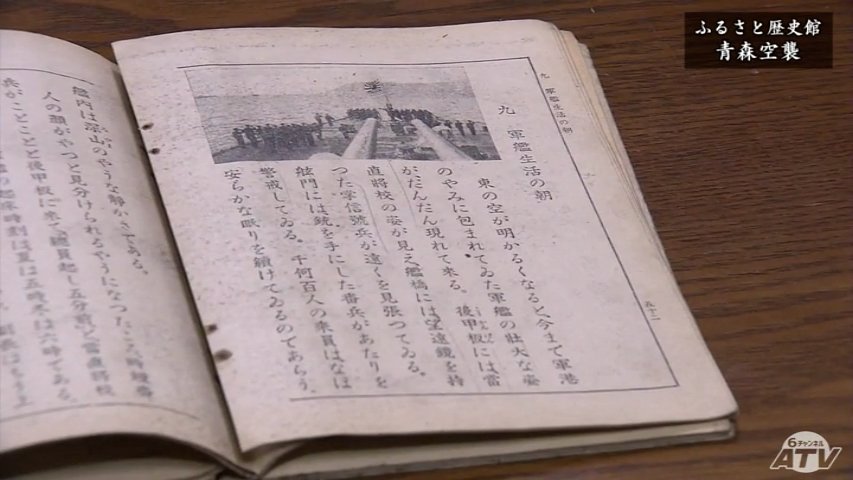 ふるさと歴史館
青森空襲
九 軍艦生活の朝
五十一
九 軍艦生活の朝
東の空が明かるくなると、今まで軍港
のやみに包まれてゐた軍艦の壯大な姿
が、だんだん現れて來る。後甲板には當
直將校の姿が見え、艦橋には望遠鏡を持
つた掌信號兵が遠くを見張つてゐる。
舷門には銃を手にした番兵があたりを
警戒してゐる。千何百人の乘員はなほ
安らかな眠りを續けてゐるのであらう。
艦内は深山のやうな靜かさである。
人の顔がやつと見分けられるやうになつたころ、
兵がことことと後甲板に來て、「總員起し五分前。」と當直將校
時刻は夏は五時、冬は六時である。
6チャンネル
ATV